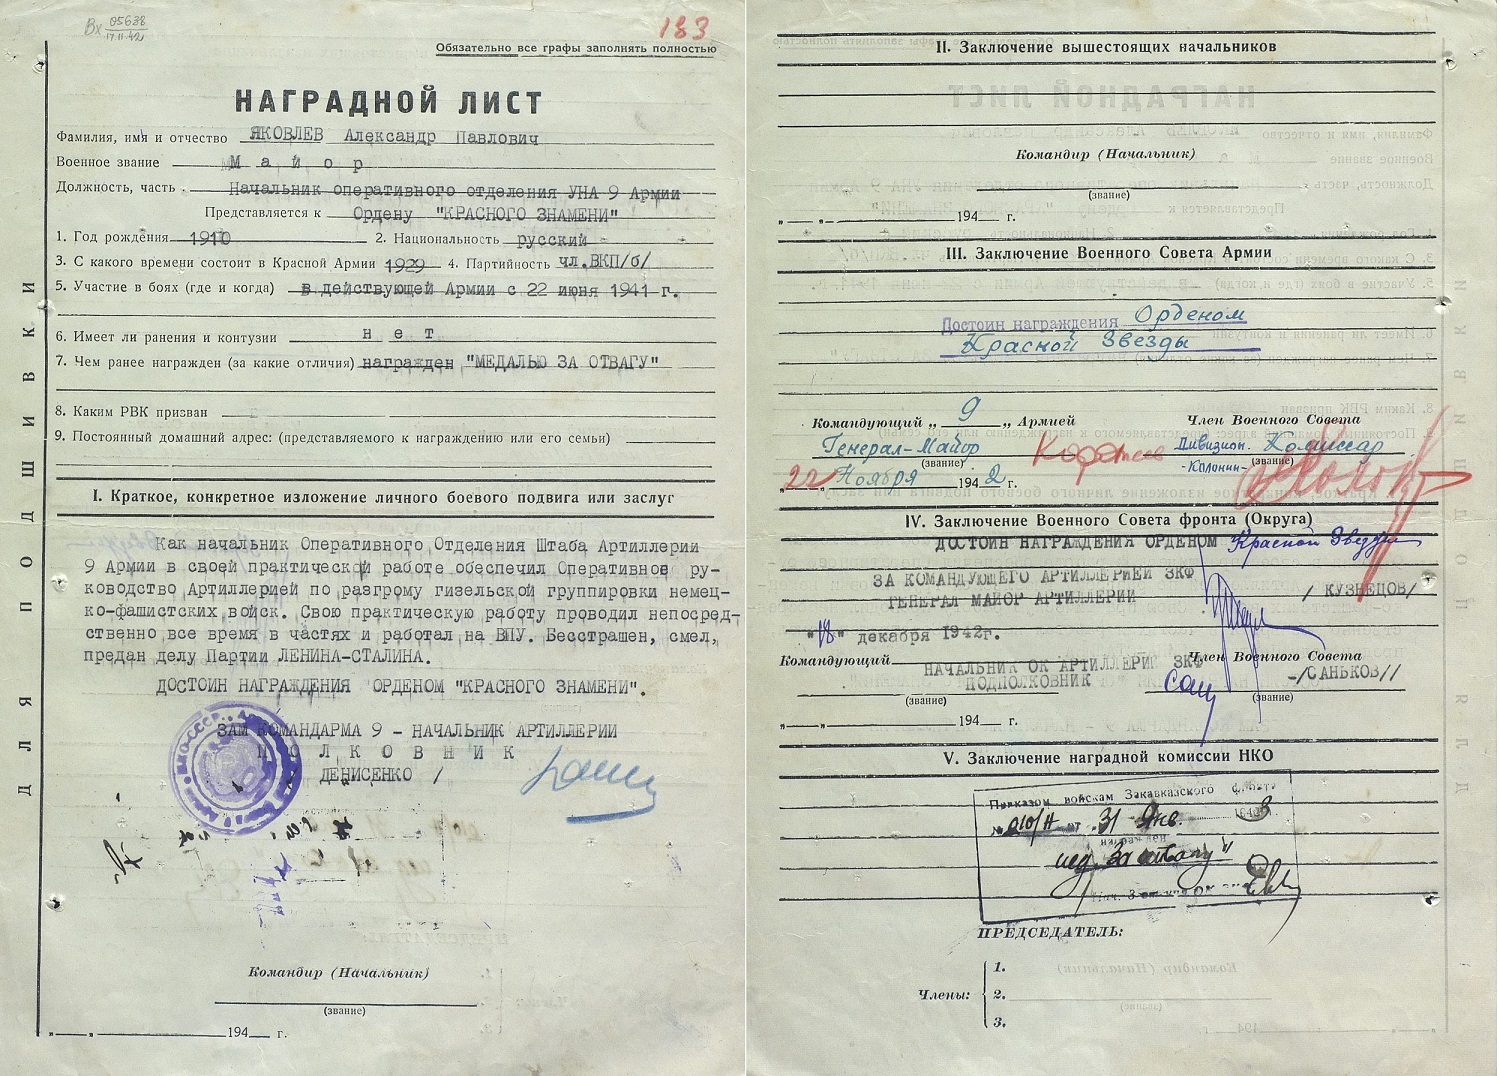 Вх 05638
17.11.42
183
Обязательно все графы заполнять полностью
НАГРАДНОЙ ЛИСТ
Фамилия, имя и отчество ЯКОВЛЕВ Александр Павлович
Военное звание М а й о р
Должность, часть Начальник оперативного отделения УНА 9 Армии
Представляется к Ордену "КРАСНОГО ЗНАМЕНИ"
1. Год рождения 1910 2. Национальность русский
3. С какого времени состоит в Красной Армии 1929 4. Партийность чл.ВКП/б/
5. Участие в боях (где и когда) в действующей Армии с 22 июня 1941 г.
6. Имеет ли ранения и контузии н е т
7. Чем ранее награжден (за какие отличия) награжден "МЕДАЛЬЮ ЗА ОТВАГУ"
8. Каким РВК призван
9. Постоянный домашний адрес: (представляемого к награждению или его семьи)
I. Краткое, конкретное изложение личного боевого подвига или заслуг
Как начальник Оперативного Отделения Штаба Артиллерии
9 Армии в своей практической работе обеспечил Оперативное ру-
ководство Артиллерией по разгрому гизельской группировки немец-
ко-фашистских войск. Свою практическую работу проводил непосред-
ственно все время в частях и работал на ВПУ. Бесстрашен, смел,
предан делу Партии ЛЕНИНА-СТАЛИНА.
ДОСТОИН НАГРАЖДЕНИЯ ОРДЕНОМ "КРАСНОГО ЗНАМЕНИ".
ЗАМ КОМАНДАРМА 9 - НАЧАЛЬНИК АРТИЛЛЕРИИ
П О Л К О В Н И К
ДЕНИСЕНКО /
Командир (Начальник)
(звание)
"—" 194 г.
ДЛЯ ПОДШИВКИ
II. Заключение вышестоящих начальников
Командир (Начальник)
(звание)
"—" 194 г.
III. Заключение Военного Совета Армии
Достоин награждения Орденом
Красной Звезды
Командующий „ 9 „ Армией Член Военного Совета
Генерал-Майор Дивизион. Комиссар
(звание) -Колонин- (звание)
22 Ноября 1942 г.
IV. Заключение Военного Совета фронта (Округа)
ДОСТОИН НАГРАЖДЕНИЯ ОРДЕНОМ Красной Звезды
ЗА КОМАНДУЮЩЕГО АРТИЛЛЕРИЕЙ ЗКФ
ГЕНЕРАЛ МАЙОР АРТИЛЛЕРИИ / КУЗНЕЦОВ/
"18" декабря 1942г.
Командующий Член Военного Совета
НАЧАЛЬНИК ОК АРТИЛЛЕРИИ ЗКФ
ПОДПОЛКОВНИК -/САНЬКОВ//
(звание) (звание)
"—" 194 г.
V. Заключение наградной комиссии НКО
Приказом войскам Закавказского фронта
№ 010/Н от 31 Янв. 1943
награжден
мед. За отвагу"
ПРЕДСЕДАТЕЛЬ:
Члены:
1.
2.
3.